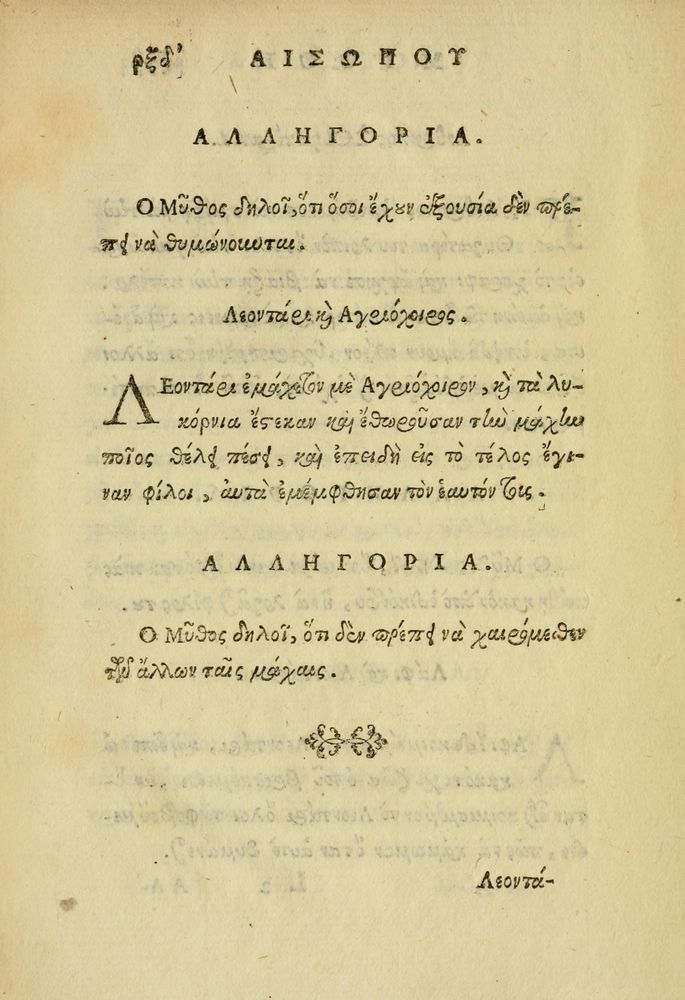 ρξδʹ ΑΙΣΩΠΟΥ
ΑΛΛΗΓΟΡΙΑ.
Ο Μῦθος δηλοῖ, ὅτι ὅσοι ἔχουν ἐξουσία δὲν πρέ-
πει νὰ θυμώνουνται.
Λεοντάρι καὶ Αγριόχοιρος.
ΛΕοντάρι ἐμάχετον μὲ Αγριόχοιρον, καὶ τὰ λυ-
κόρνια ἔστεκαν καὶ ἐθωροῦσαν τὴν μάχην
ποῖος θέλει πέσει, καὶ ἐπειδὴ εἰς τὸ τέλος ἔγι-
ναν φίλοι, αὐτὰ ἐμέμφθησαν τὸν ἑαυτόν τις.
ΑΛΛΗΓΟΡΙΑ.
Ο Μῦθος δηλοῖ, ὅτι δὲν πρέπει νὰ χαιρόμεσθεν
τῶν ἄλλων ταῖς μάχαις.
Λεοντά-